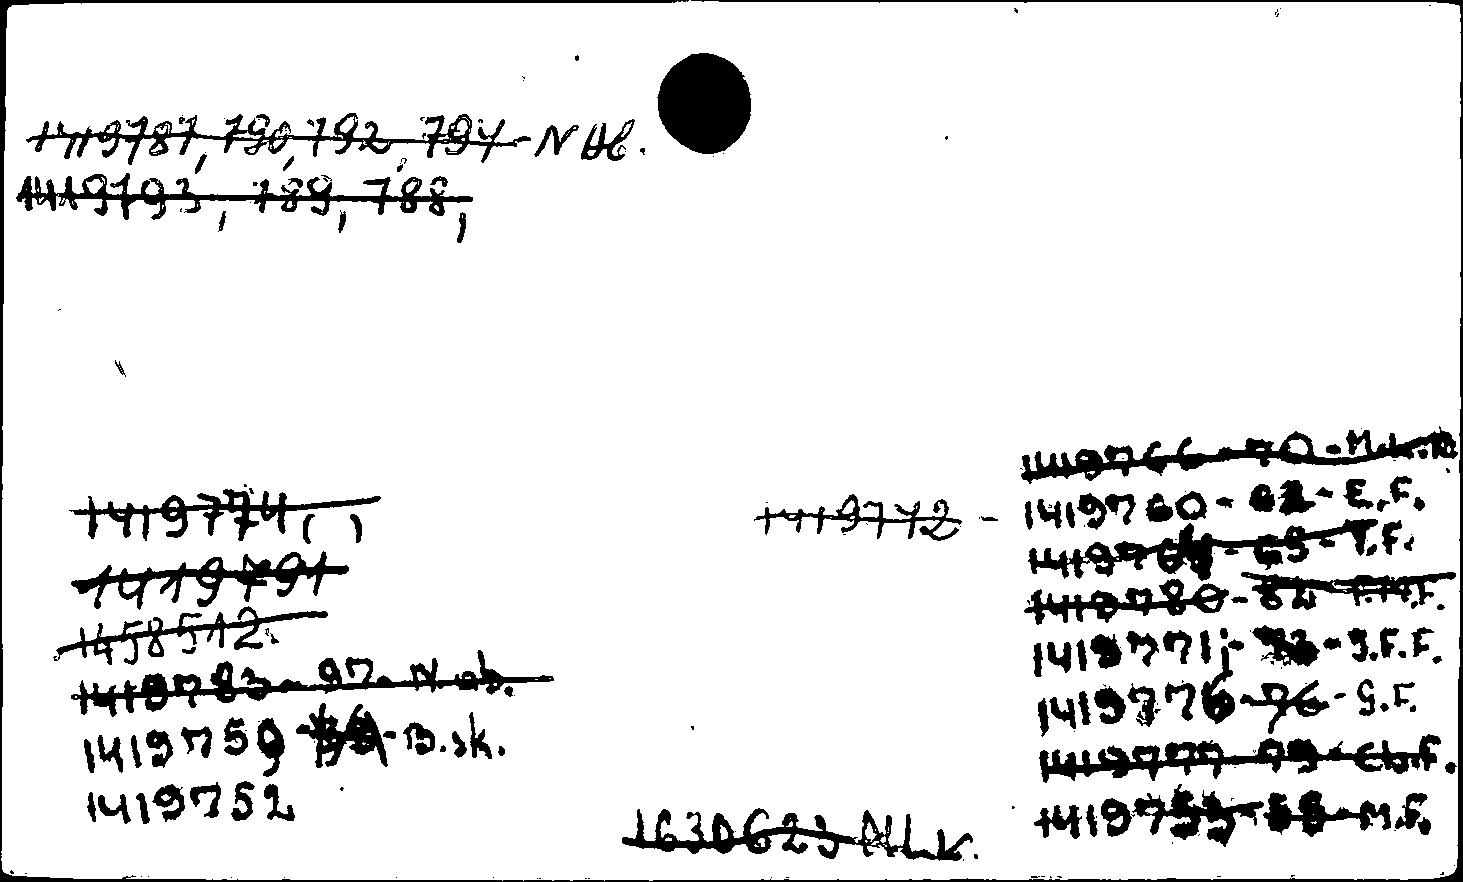 1419787, 790, 792, 794 - N Ab.
1419793, 789, 788,
1419774, ( )
1419791
1458512
1419783 - 97 - N. ab.
1419750 - B.sk.
1419752
1419742 -
1630623 N.L.K.
1419766 - 70 - M.L.
1419760 - 62 - E.F.
1419764 - 65 - T.F.
1419780 - 82 F.M.F.
1419771, - 73 - J.F.F.
1419776 - 76 - G.F.
1419777 - 79 - Cb.F.
1419753 - 58 - M.F.